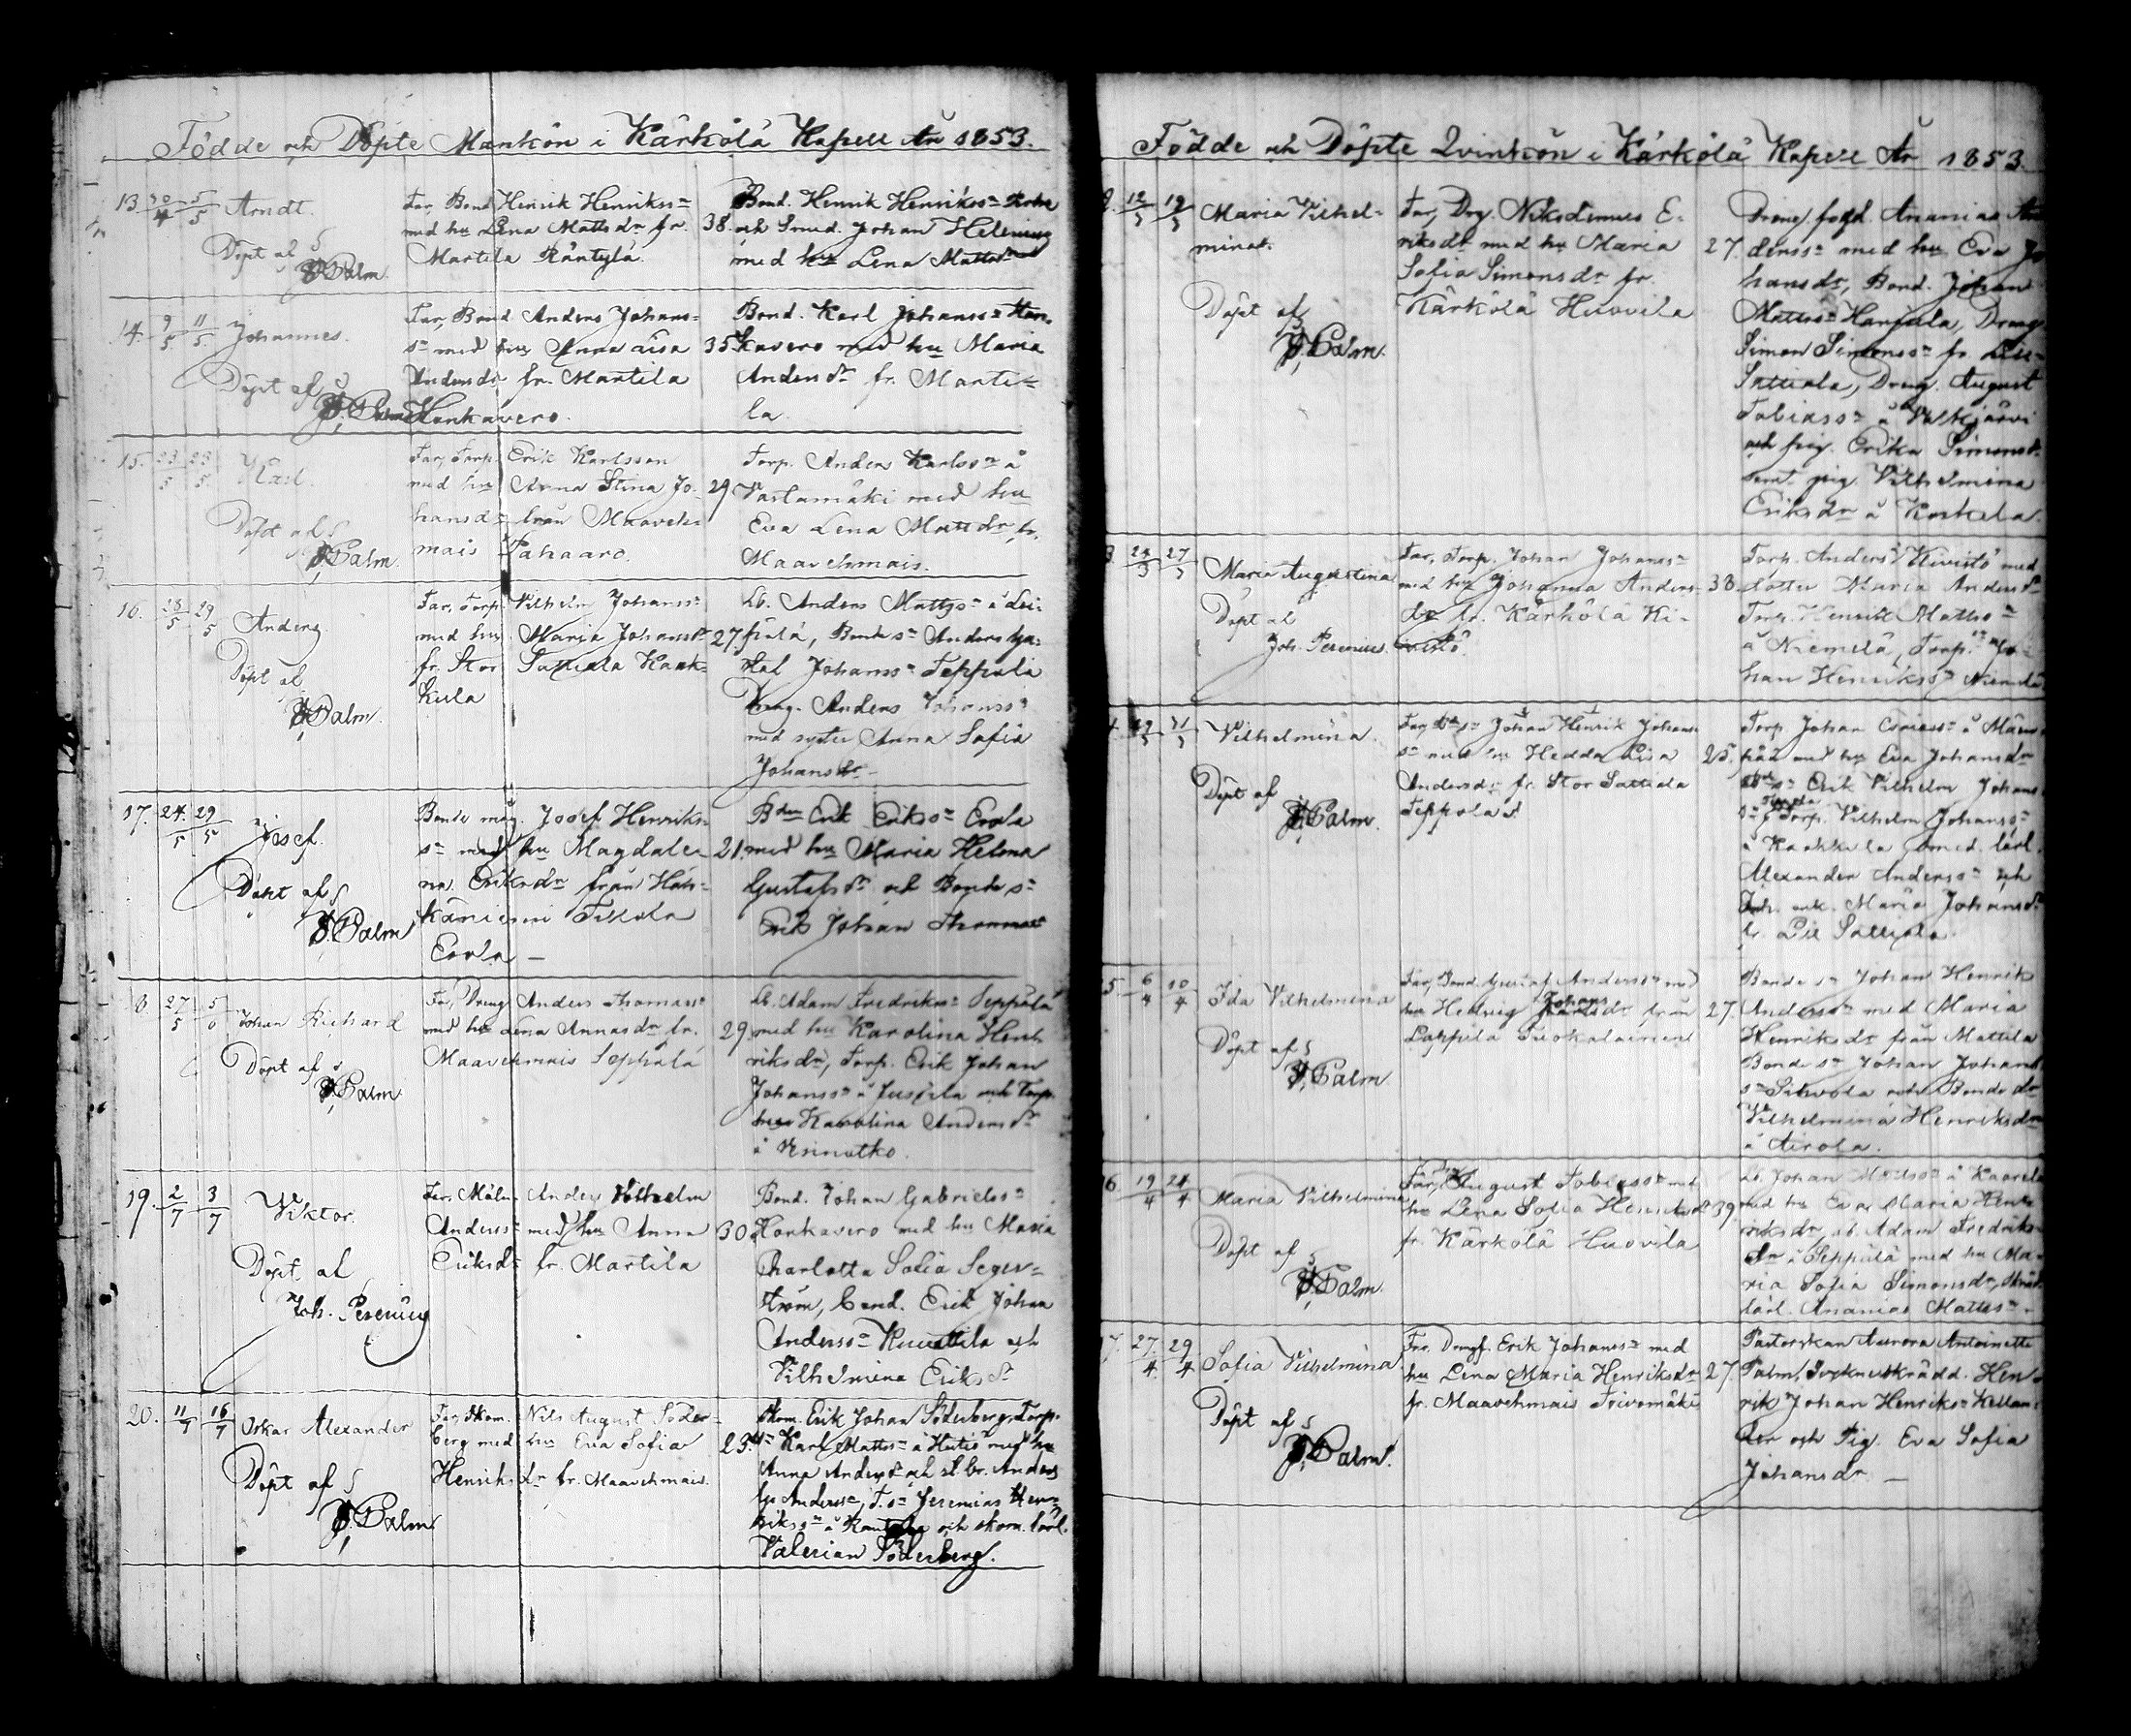 Födde och Döpte Mankön i Kärkölä Kapell År 1853.
13. 30/4 5/5 Arndt.
Döpt af
Palm.
Far, Bond Henrik Henrikss=
med hu Lena Mattsdr fr.
Martila Räntylä.
38.
Bond. Henrik Henrikss=
och Smed. Johan Helenius
med hu Lena
14. 9/5 11/5 Johannes.
Döpt af
Palm
Far, Bond Anders Johans=
sn med hu Anna Lisa
Andersdr fr. Martila
Honkavero.
35.
Bond. Karl Johanss= Hon-
kavero med hu Maria
Andersdr fr. Marti=
la.
15. 23/5 25/5 Karl.
Döpt af
Palm.
Far, Torp. Erik Karlsson
med hu Anna Stina Jo-
hansdr från Maaveh-
mais Pahaaro.
29
Torp. Anders Karlssn å
Vartamäki med hu
Eva Lena Mattsdr fr.
Maavehmais.
16. 28/5 29/5 Anders.
Döpt af
Palm.
Far, Torp. Vilhelm Johanss=
med hu Maria Johansdr
fr. Stor Sattiala Kaak-
kula
27.
Lb. Anders Mattss= å
Bonds= Anders Gu-
staf Johanss= Teppola
Dreng. Anders Johanss=
med syster Anna Sofia
Johansdr -
17. 24/5 29/5 Josef.
Döpt af
Palm
Bonde måg. Josef Henriks-
sn med hu Magdale-
na Eriksdr från Häh-
käniemi Tillola
Erola -
21.
Bden Erik Erikssn Erola
med hu Maria Helena
Gustafsdr och Bondes=
Erik Johan Thomass=
8. 27/5 5/6 Johan Richard
Döpt af
Palm.
Far, Dreng Anders Thomass=
med hu Lena Annasdr fr.
Maavehmais Seppälä
29.
Lb. Adam Fredrikss= Seppälä
med hu Karolina Hen-
riksdr, Torp. Erik Johan
Johanss= å Jussila och Torp.
hu Karolina Andersdr
å Knuutko.
19. 2/7 3/7 Viktor.
Döpt af
Joh. Perenius
Far, Måln Anders Vilhelm
Anderss= med hu Anna
Eriksdr fr. Martila
30.
Bond. Johan Gabrielss=
Honkavero med hu Maria
Charlotta Sofia Seger-
ström, Bond. Erik Johan
Anderss= Knuuttila och
Vilhelmina Eriksdr
20. 11/7 16/7 Oskar Alexander
Döpt af
Palm.
Far, Skom. Nils August Söder-
berg med hu Eva Sofia
Henriksdr fr. Maavehmais.
23.
Skom. Erik Johan Söderberg, Torp.
sn Karl Mattss= å Hutio med hu
Anna Andersdr och Anders
Gu Anderss=, T. sn Jeremias Hen-
rikssn å och skom. lärl.
Valerian Söderberg.
Födde och Döpte Qvinkön i Kärkölä Kapell År 1853.
12/3 19/3 Maria Vilhel-
mina.
Döpt af
Palm.
Far, Drg. Nikodemus E-
riksdr med hu Maria
Sofia Simonsdr fr.
Kärkölä Huovila
27.
Dreng fogd. Ananias
derss= med hu Eva Jo
hansdr, Bond. Johan
Mattss= Hangula, Dreng
Simon Simonss= fr. Lill
Sattiala, Dreng. August
Tobiass= å Valkjärvi
och pig. Erika Simonsdr
samt pig. Vilhelmina
Eriksdr å Koskela.
3. 24/3 27/3 Maria Augustina
Döpt af
Joh. Perenius.
Far, Torp. Johan Johanss=
med hu Johanna Anders-
dr fr. Kärkölä Ki-
vistö
38.
Torp. Anders Kivistö med
dotter Maria Andersdr
Torp. Henrik Mattss=
å Niemelä, Torp. Jo-
han Henrikss= Niemelä
29/3 31/3 Vilhelmina.
Döpt af
Palm.
Far, Johan Henrik Johans-
sn med hu Hedda Lisa
Andersdr fr. Stor Sattiala
Teppola
25.
Torp Johan Esaiass= å
pää med hu Eva Johansdr
Erik Vilhelm Johans
sn Teppola Torp. Vilhelm Johanss=
å Kaakkula Smed. lärl.
Alexander Anderss= och
Maria Johansdr
fr. Lill Sattiala
5. 6/4 10/4 Ida Vilhelmina
Döpt af
Palm.
Far, Bond. Gustaf Anderss= med
hu Hedvig Johansdr från
Lappila Tuokalainen
27.
Bondes= Johan Henrik
Anderss= med Maria
Henriksdr från Mattila
Bonde sn Johan Johans
sn Sihvola och Bonde dr
Vilhelmina Henriksdr
å Airola.
16. 19/4 24/4 Maria Vilhelmina
Döpt af
Palm.
Far, August Tobiass= med
hu Lena Sofia Henriksdr
fr. Kärkölä Huovila
39.
Lb. Johan Mattss= å Kaarela
med hu Eva Maria Hen-
riksdr, Lb. Adam Fredriks-
sn å Seppälä med hu Ma-
ria Sofia Simonsdr,
lärl. Ananias Mattss=
17. 27/4 29/4 Sofia Vilhelmina.
Döpt af
Palm.
Far. Drengf. Erik Johanss= med
hu Lena Maria Henriksdr
fr. Maavehmais Toivomäki
27.
Pastorskan Aurora Antoinette
Palm, Sockneskrädd. Hen-
rik Johan Henrikss= Kellan-
der och Pig. Eva Sofia
Johansdr. -